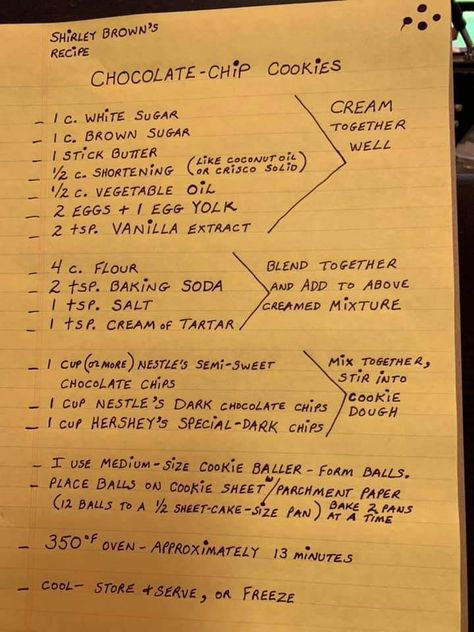 SHIRLEY BROWN'S
RECIPE
CHOCOLATE-CHIP COOKIES
- 1 C. WHITE SUGAR
- 1 C. BROWN SUGAR
- 1 STICK BUTTER
- 1/2 C. SHORTENING (LIKE COCONUT OIL OR CRISCO SOLID)
- 1/2 C. VEGETABLE OIL
- 2 EGGS + 1 EGG YOLK
- 2 tSP. VANILLA EXTRACT
CREAM
TOGETHER
WELL
- 4 C. FLOUR
- 2 tSP. BAKING SODA
- 1 tSP. SALT
- 1 tSP. CREAM OF TARTAR
BLEND TOGETHER
AND ADD TO ABOVE
CREAMED MIXTURE
- 1 CUP (OR MORE) NESTLE'S SEMI-SWEET
CHOCOLATE CHIPS
- 1 CUP NESTLE'S DARK CHOCOLATE CHIPS
- 1 CUP HERSHEY'S SPECIAL-DARK CHIPS
MIX TOGETHER,
STIR INTO
COOKIE
DOUGH
- I USE MEDIUM-SIZE COOKIE BALLER - FORM BALLS.
- PLACE BALLS ON COOKIE SHEET W/PARCHMENT PAPER
(12 BALLS TO A 1/2 SHEET-CAKE-SIZE PAN) BAKE 2 PANS AT A TIME
- 350°F OVEN - APPROXIMATELY 13 MINUTES
- COOL - STORE + SERVE, OR FREEZE